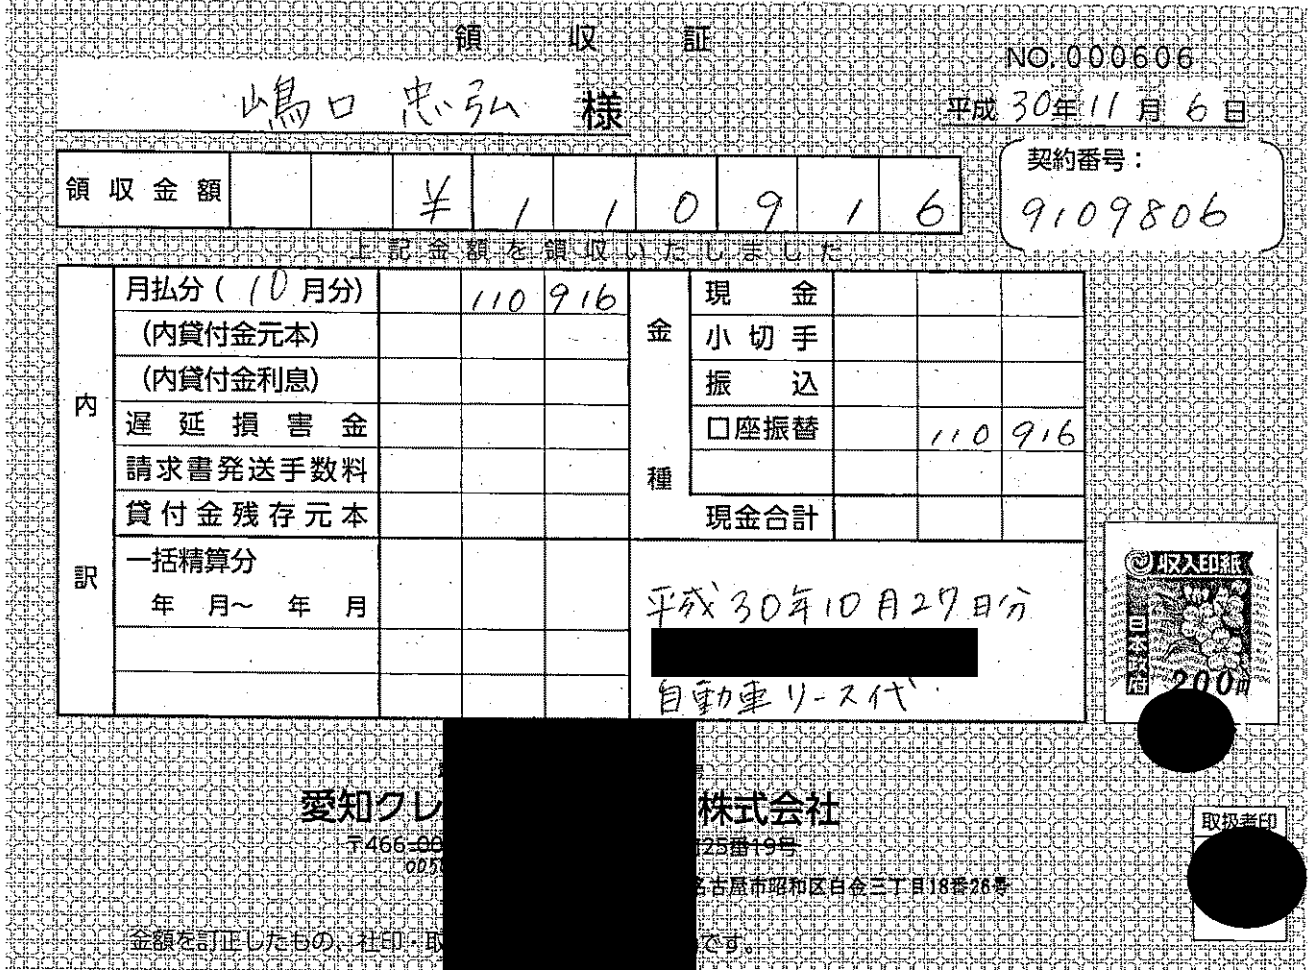 領収証
NO.000606
嶋口 忠弘 様
平成30年11月6日
領収金額 ¥110916
契約番号:
9109806
上記金額を領収いたしました
内訳
月払分(10月分) 110 916
(内貸付金元本)
(内貸付金利息)
遅延損害金
請求書発送手数料
貸付金残存元本
一括精算分
年 月~ 年 月
金種
現金
小切手
振込
口座振替 110 916
現金合計
平成30年10月27日分
自動車リース代
収入印紙
日本政府
200円
愛知クレ
株式会社
〒466-00
25番19号
005
名古屋市昭和区白金三丁目18番26号
取扱者印
金額を訂正したもの、社印・取
です。